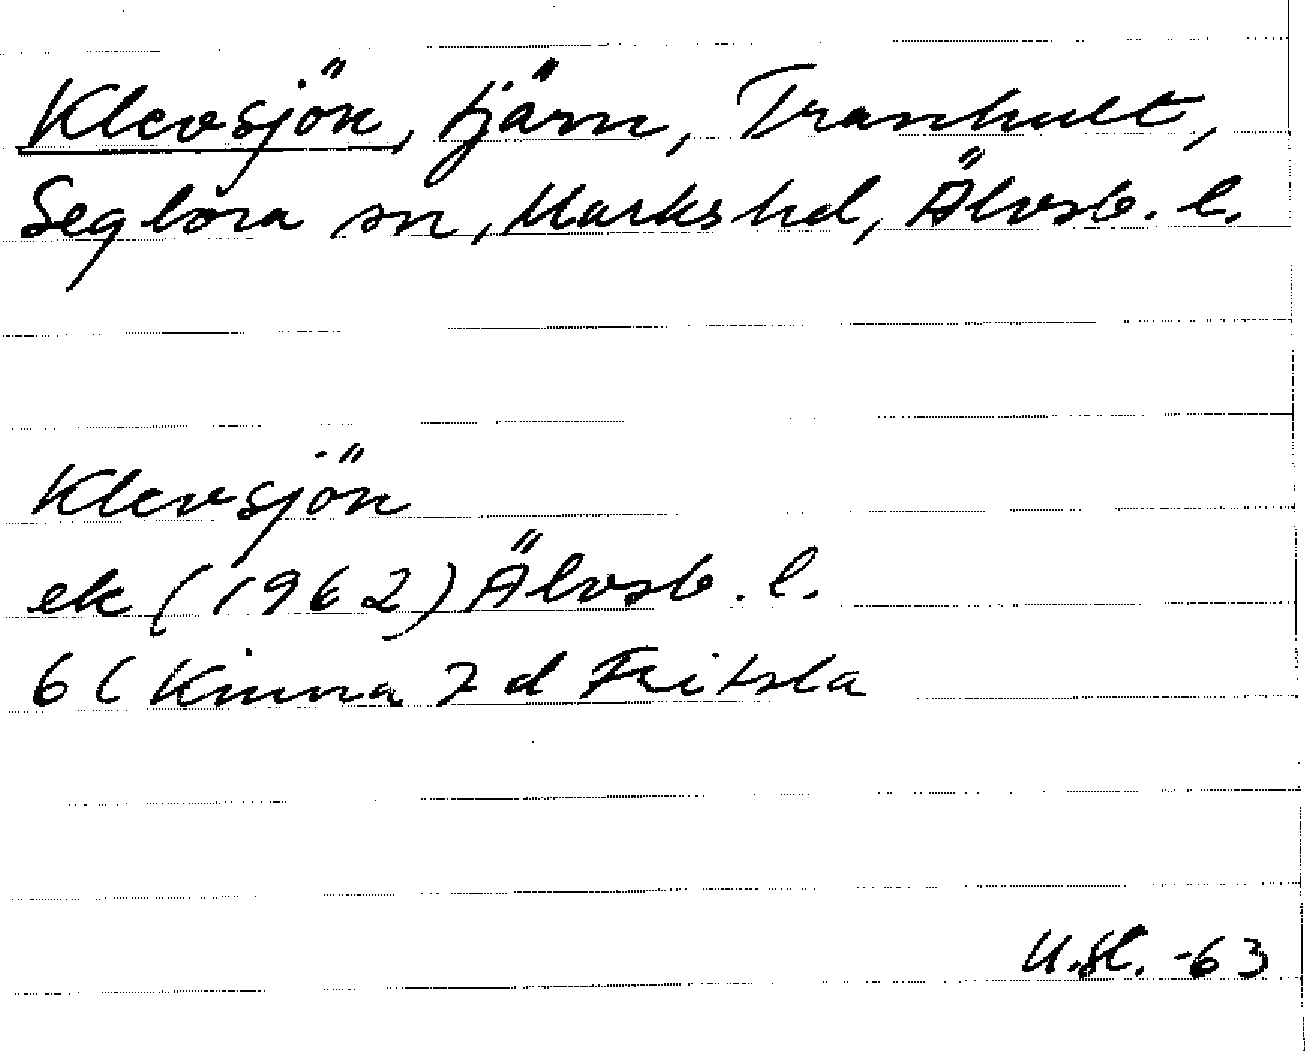 Klevsjön, tjärn, Tranhult,
Seglora sn, Marks hd, Älvsb. l.
Klevsjön
ek (1962) Älvsb. l.
6 C Kinna 7 d Fritsla
-63